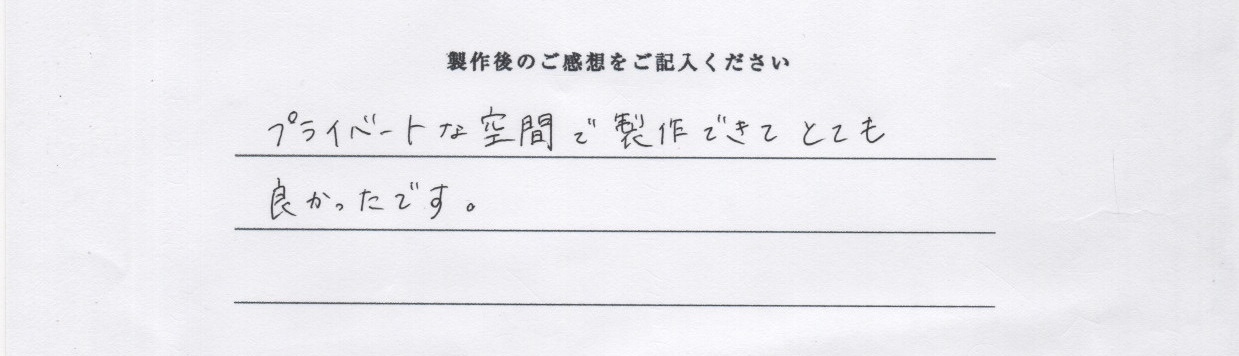 製作後のご感想をご記入ください
プライベートな空間で製作できてとても
良かったです。